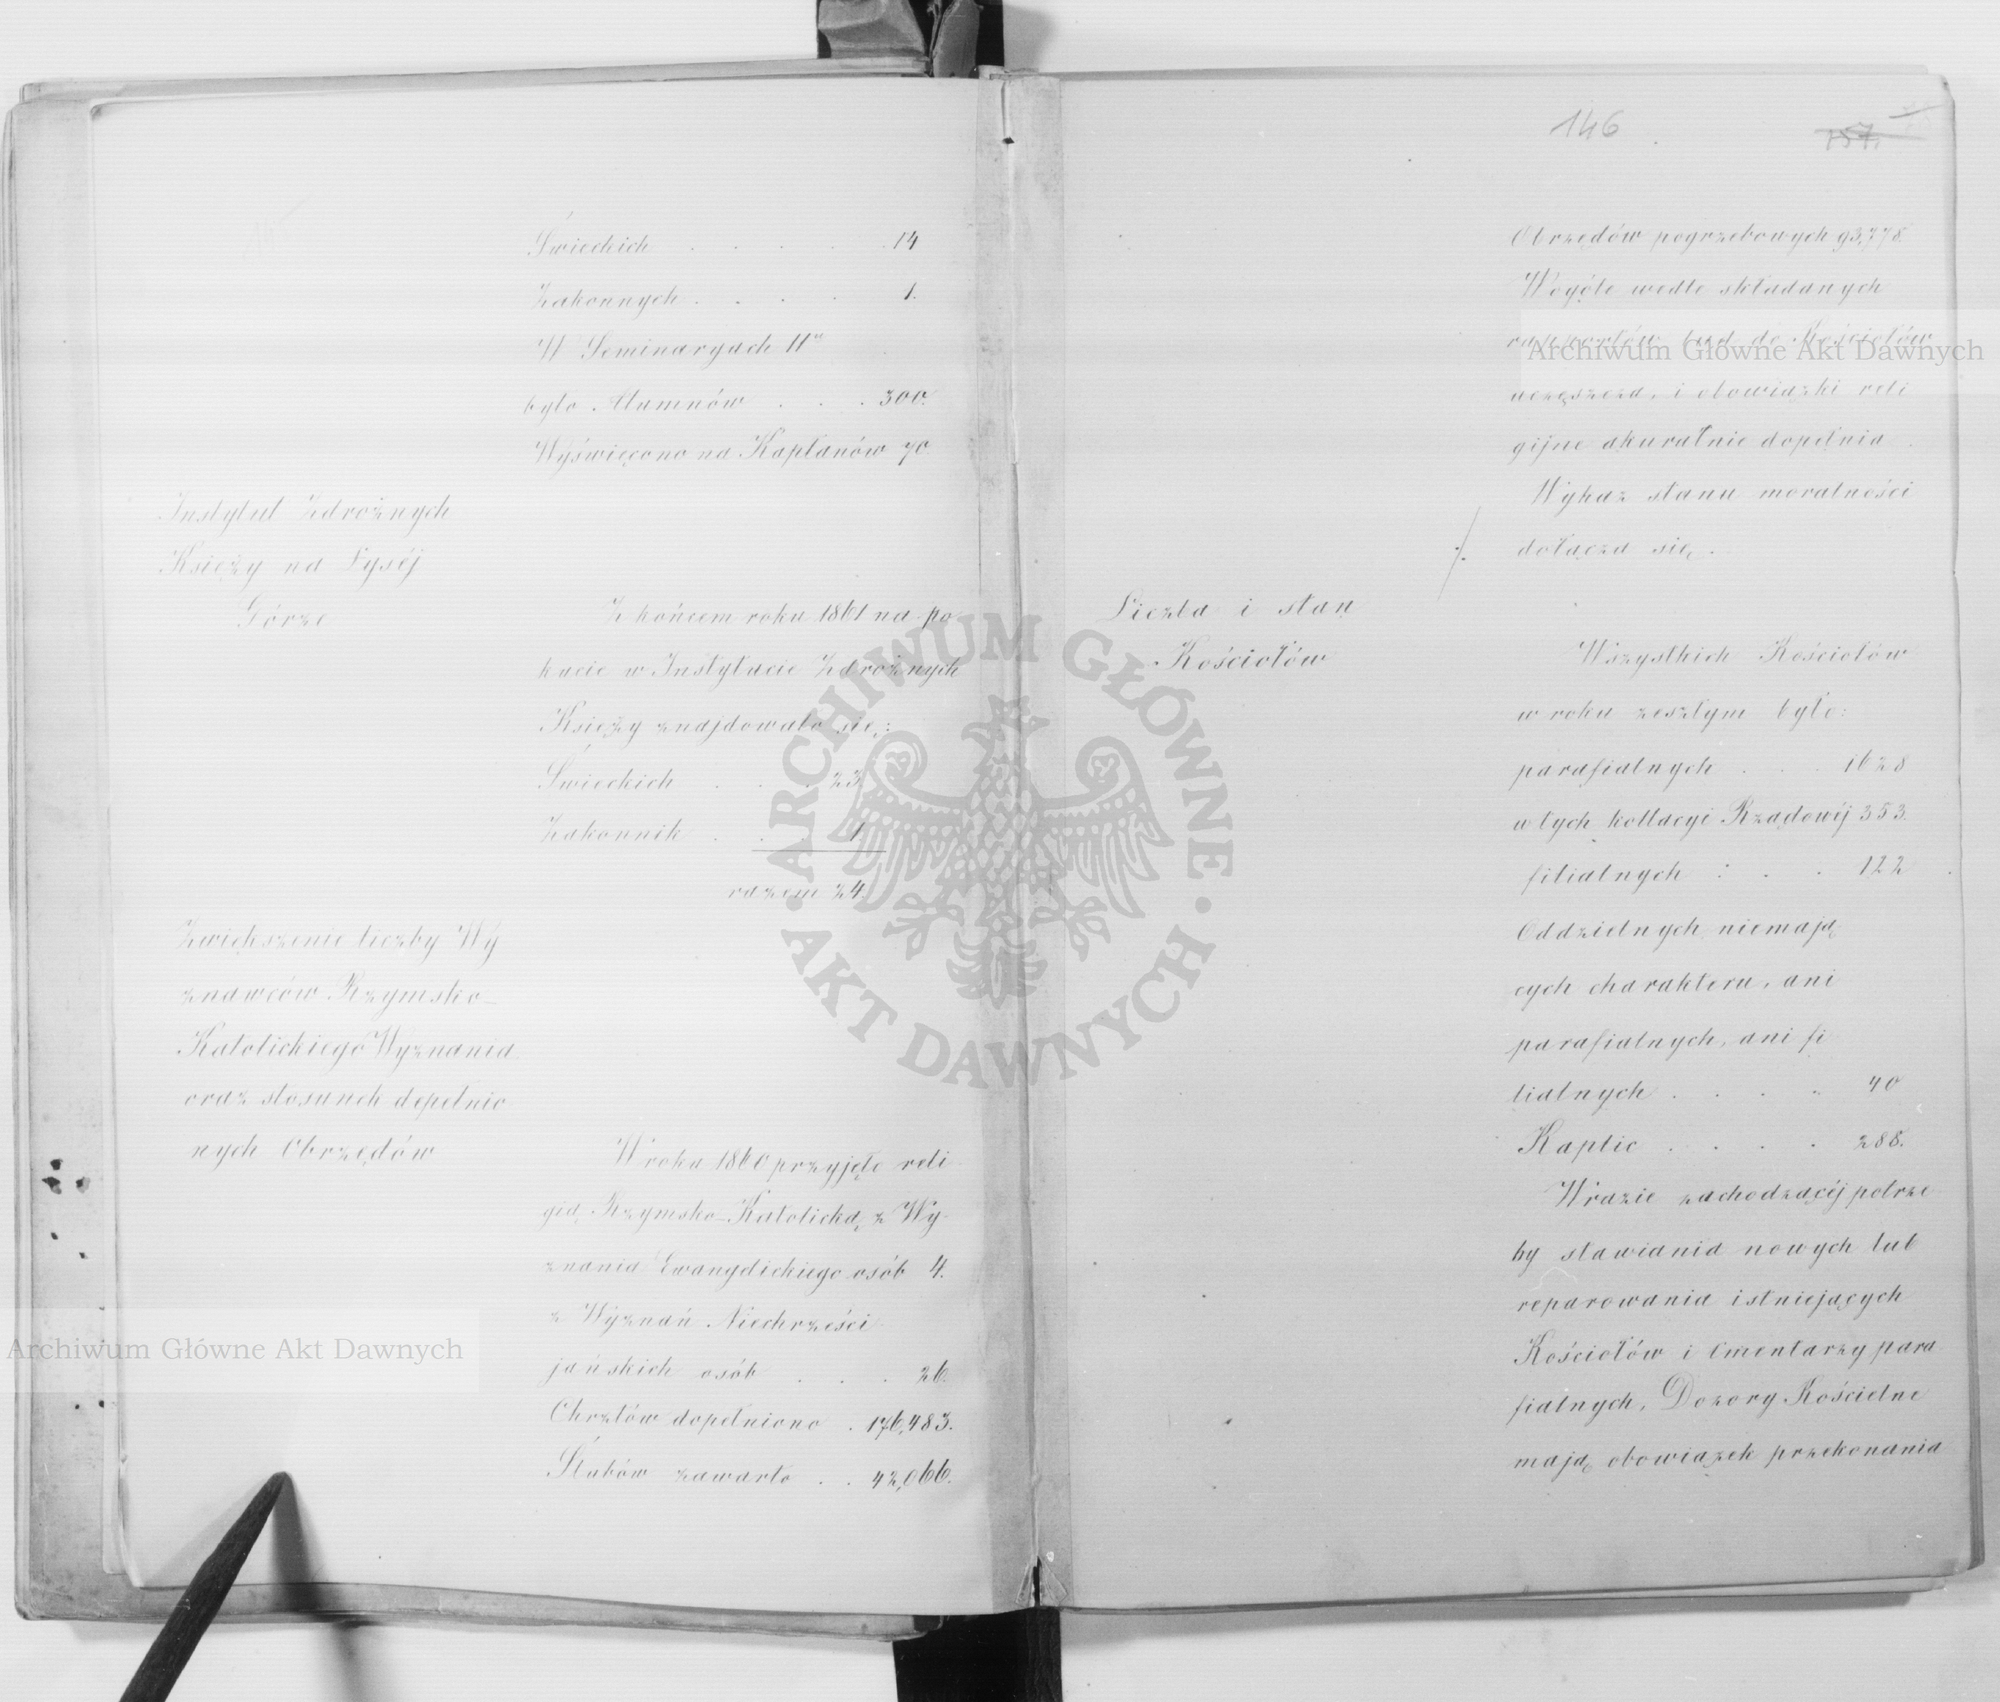 Świeckich . . . . . 14
Zakonnych . . . . 1.
W Seminaryach 11u
było Alumnów . . . 300.
Wyświęcono na Kapłanów 70
Instytut Zdrożnych
Księży na Łyséj
Górze
Z końcem roku 1861 na po
kucie w Instytucie Zdrożnych
Księży znajdowało się:
Świeckich . . . 23
Zakonnik . . 1
razem 24.
Zwiększenie liczby Wy
znawców Rzymsko-
Katolickiego Wyznania
oraz stosunek dopełnio
nych Obrzędów
W roku 1860 przyjęło reli
gią Rzymsko-Katolicką z Wy-
znania Ewangelickiego osób 4.
z Wyznań Niechrześci
jańskich osób . . . 26.
Chrztów dopełniono . 176,483.
Ślubów zawarto . . 42,066.
146
157.
Obrzędów pogrzebowych 93,778.
Wogóle wedle składanych
raportów lud do Kościołów
uczęszcza, i obowiązki reli
gijne akuratnie dopełnia.
Wykaz stanu moralności
./. dołącza się.
Liczba i stan
Kościołów
Wszystkich Kościołów
w roku zeszłym było:
parafialnych . . . 1628
w tych kollacyi Rządowéj 353.
filialnych . . . 122
Oddzielnych niemają
cych charakteru, ani
parafialnych, ani fi
lialnych . . . . 40
Kaplic . . . . 288.
W razie zachodzącéj potrze
by stawiania nowych lub
reparowania istniejących
Kościołów i Cmentarzy para
fialnych, Dozory Kościelne
mają obowiązek przekonania
Archiwum Główne Akt Dawnych
Archiwum Główne Akt Dawnych
ARCHIWUM GŁÓWNE
AKT DAWNYCH